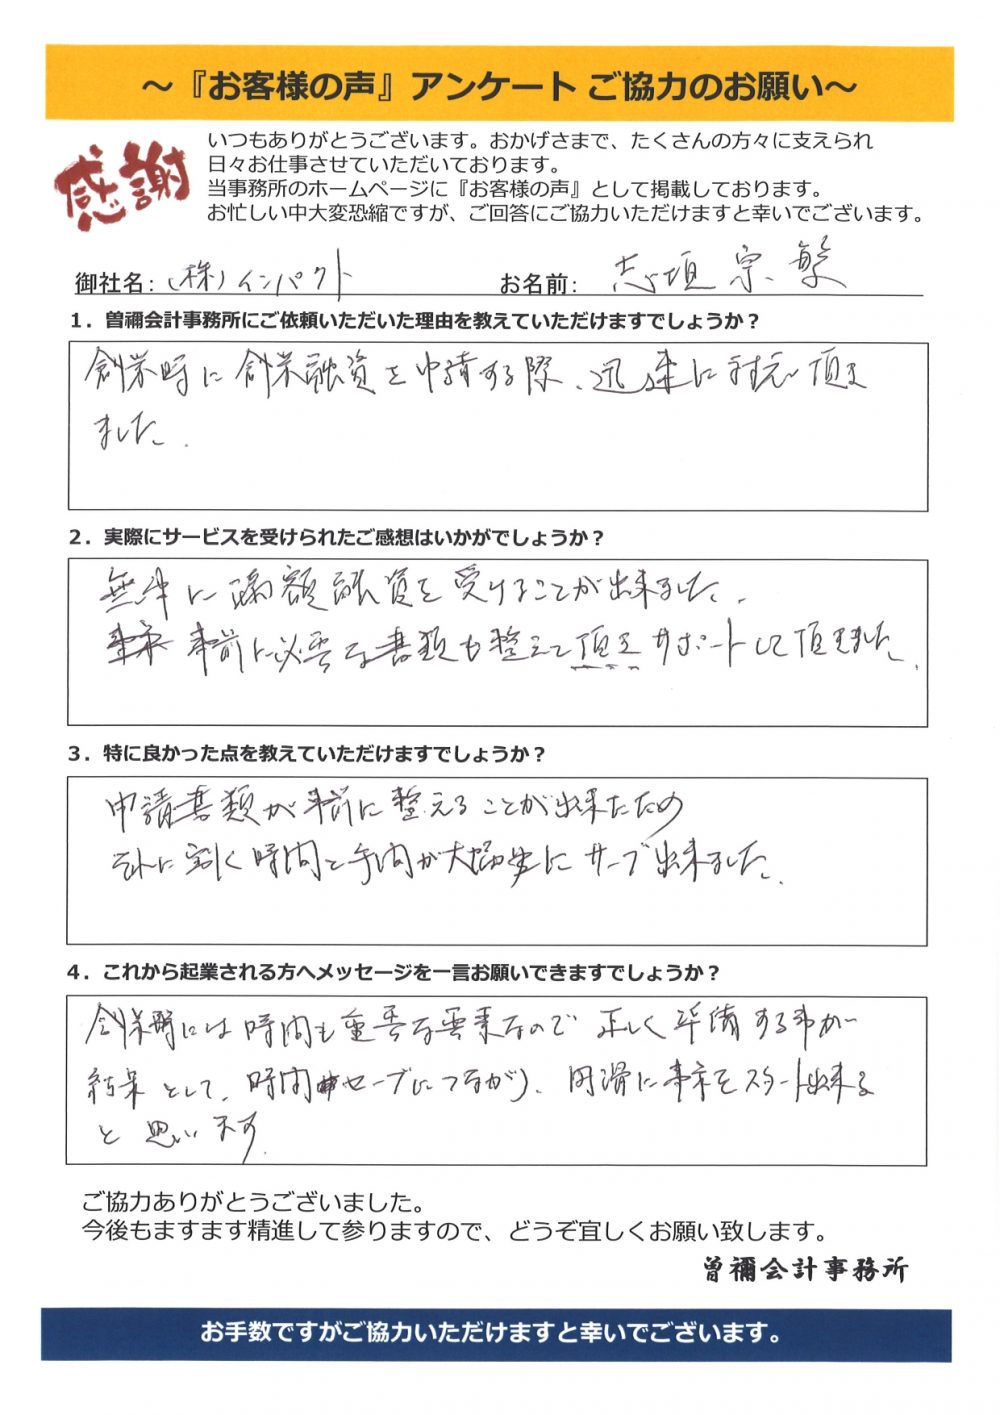 ～『お客様の声』アンケート ご協力のお願い～
感謝
いつもありがとうございます。おかげさまで、たくさんの方々に支えられ
日々お仕事させていただいております。
当事務所のホームページに『お客様の声』として掲載しております。
お忙しい中大変恐縮ですが、ご回答にご協力いただけますと幸いでございます。
御社名：(株)インパクト お名前：志垣 宗繁
1．曽禰会計事務所にご依頼いただいた理由を教えていただけますでしょうか？
創業時に創業融資を申請する際、迅速に対応頂き
ました。
2．実際にサービスを受けられたご感想はいかがでしょうか？
無事に満額融資を受けることが出来ました。
事前に必要な書類も整えて頂きサポートして頂きました。
3．特に良かった点を教えていただけますでしょうか？
申請書類が事前に整えることが出来たため
それに割く時間と手間が大幅にセーブ出来ました。
4．これから起業される方へメッセージを一言お願いできますでしょうか？
創業時には時間も重要な要素なので正しく準備する事が
結果として、時間セーブにつながり、円滑に事業をスタート出来る
と思います
ご協力ありがとうございました。
今後もますます精進して参りますので、どうぞ宜しくお願い致します。
曽禰会計事務所
お手数ですがご協力いただけますと幸いでございます。